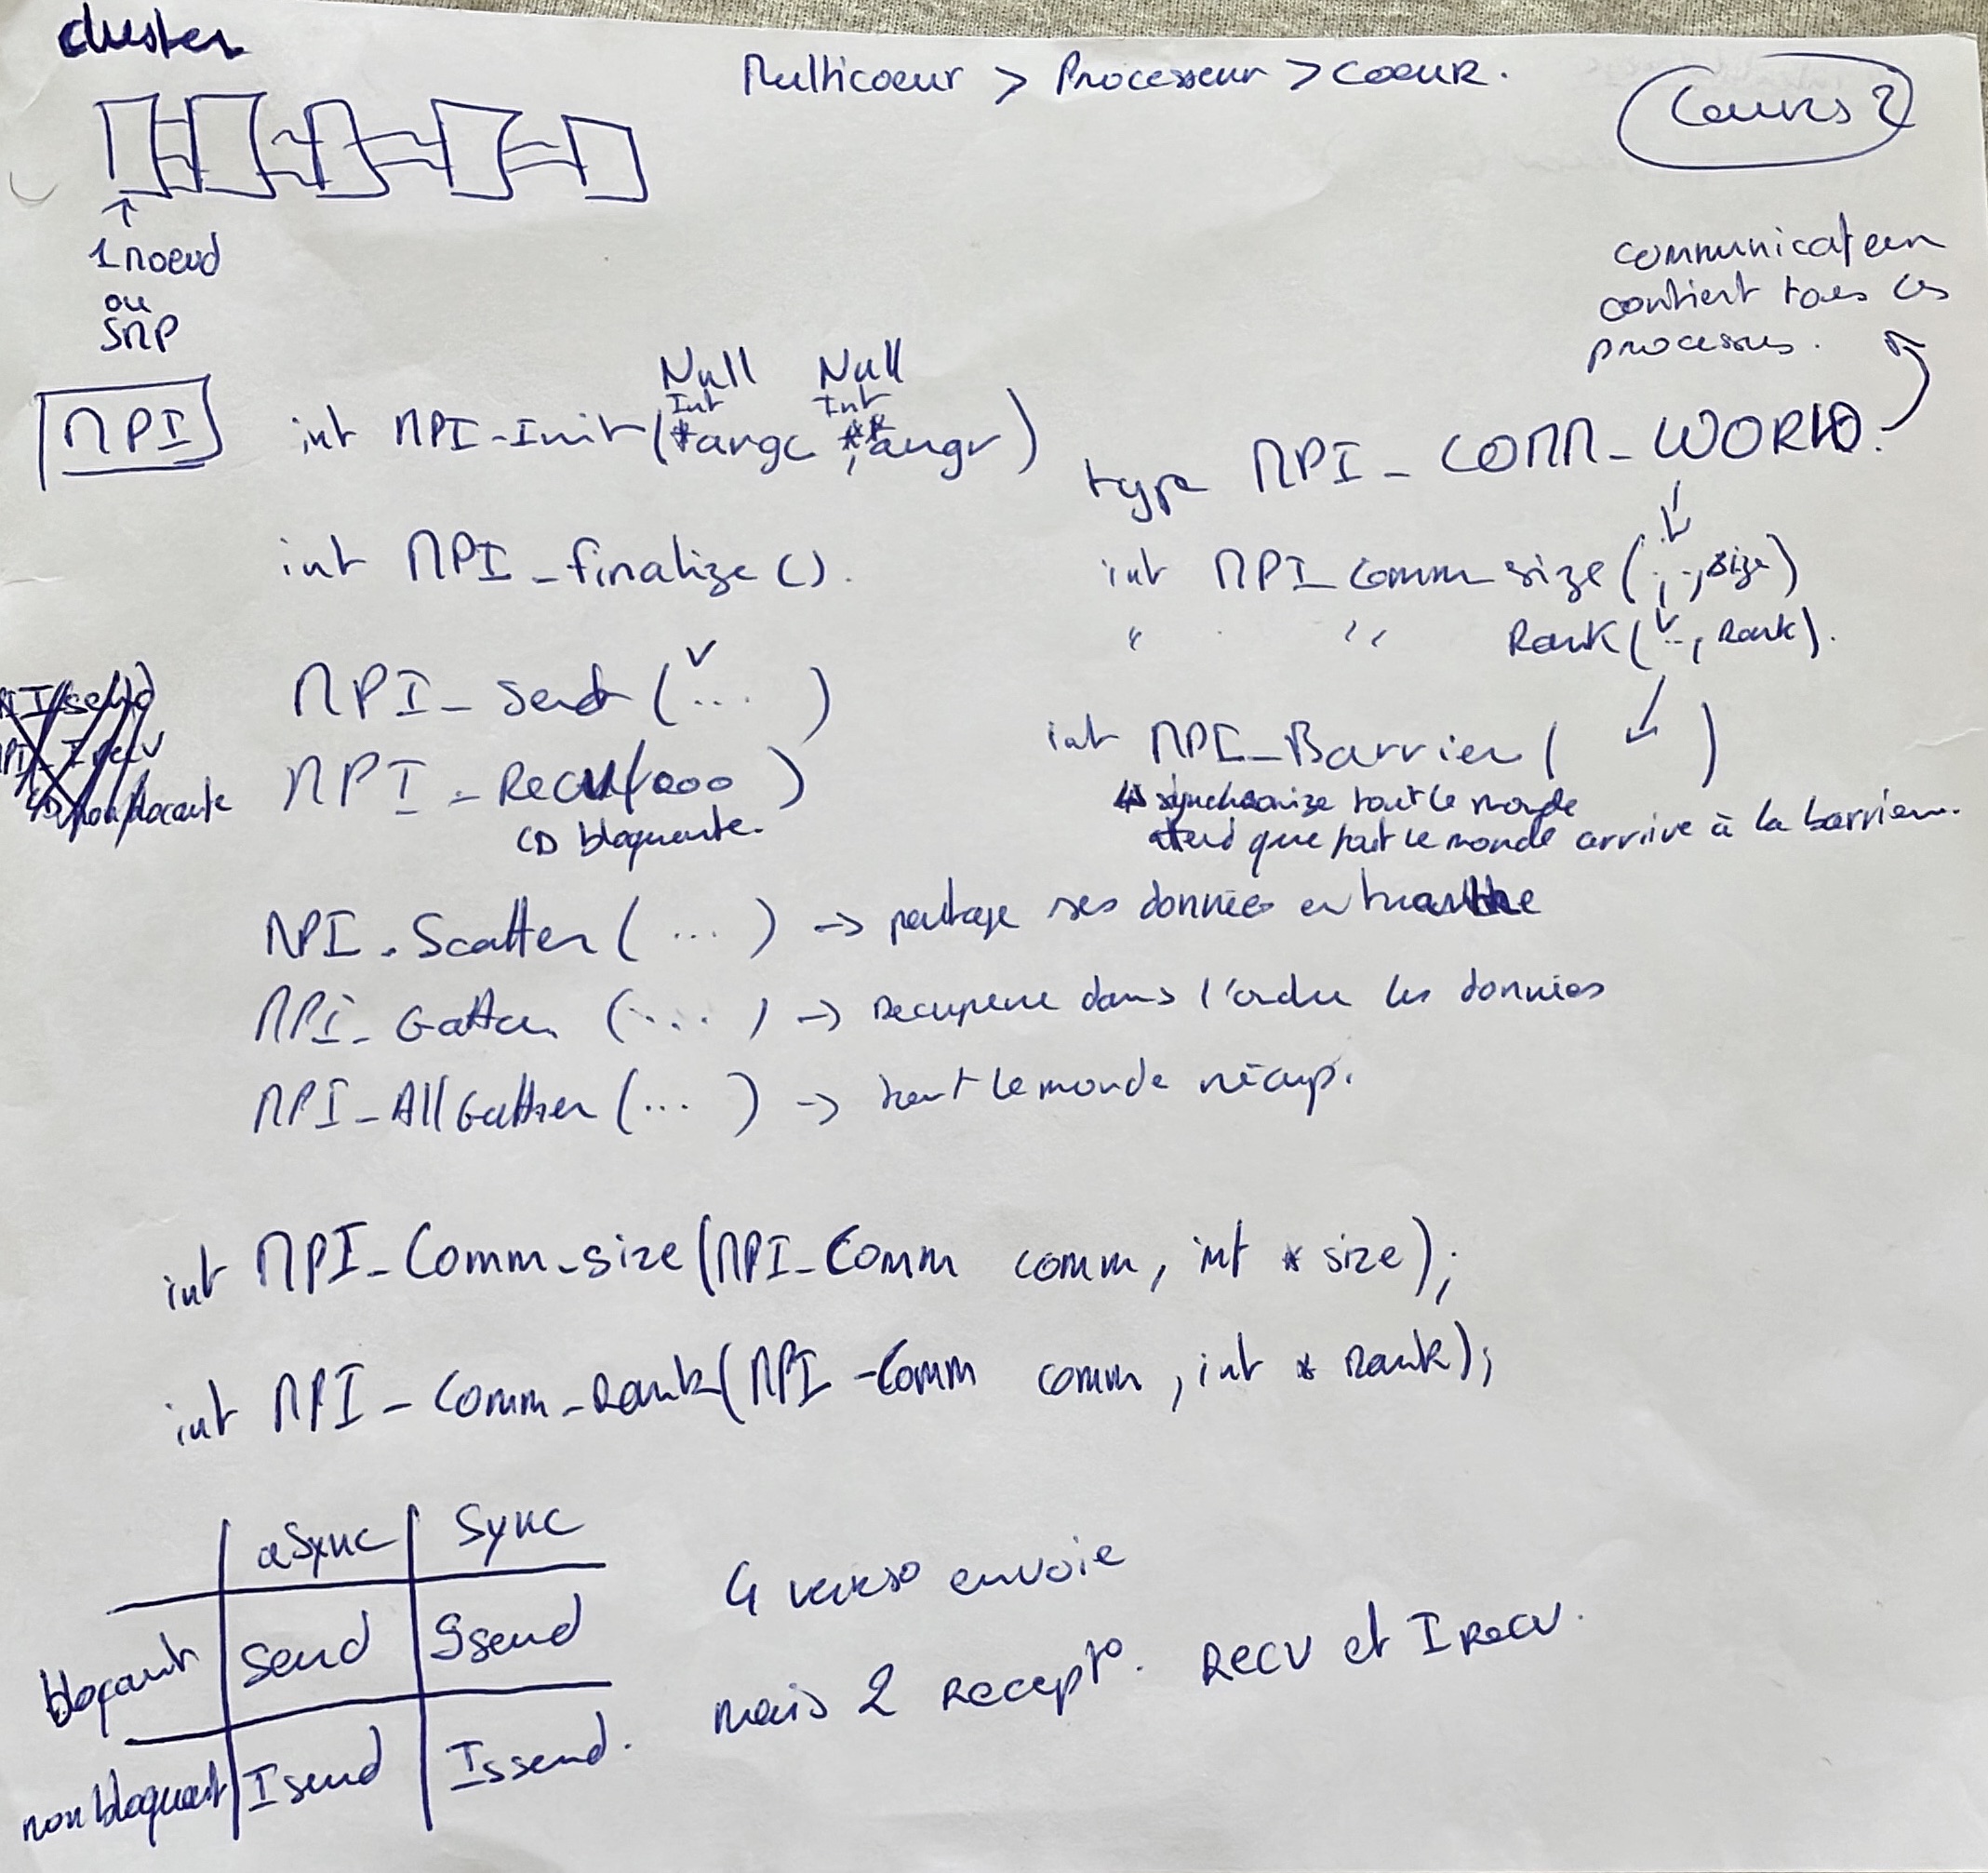 cluster
Multicoeur > Processeur > COEUR.
Cours 2
1 noeud
ou
SMP
communicateur
contient tous les
processus.
MPI
Null Null
Int Int
int MPI_Init(*argc, **argv)
type MPI_COMM_WORLD.
int MPI_finalize().
int MPI_Comm_size(..., size)
" " Rank(..., Rank).
MPI_Send(...)
MPI_Isend
MPI_Irecv
non blocante
MPI_Recv(...)
bloquante.
int MPI_Barrier( )
synchronize tout le monde
attend que tout le monde arrive à la barrière.
MPI_Scatter(...) -> partage ses données en tranche
MPI_Gather (...) -> recupere dans l'ordre les données
MPI_AllGather(...) -> tout le monde récup.
int MPI_Comm_size(MPI_Comm comm, int * size);
int MPI_Comm_Rank(MPI_Comm comm, int * Rank);
aSync Sync
bloçant Send Ssend
non bloquant Isend Issend.
4 verso envoie
mais 2 recept°. RECV et IRecv.